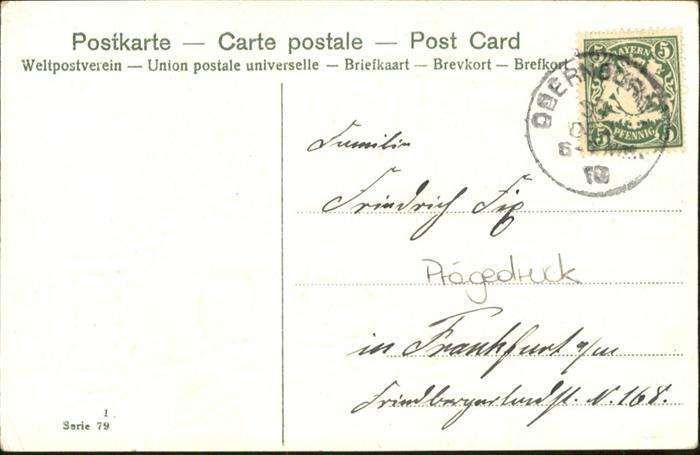 Postkarte — Carte postale — Post Card
Weltpostverein — Union postale universelle — Briefkaart — Brevkort — Brefkort
5 BAYERN 5
5 PFENNIG 5
Familie
Friedrich Fix
Prägedruck
in Frankfurt a/m
Friedbergerlandst. N. 168.
1
Serie 79